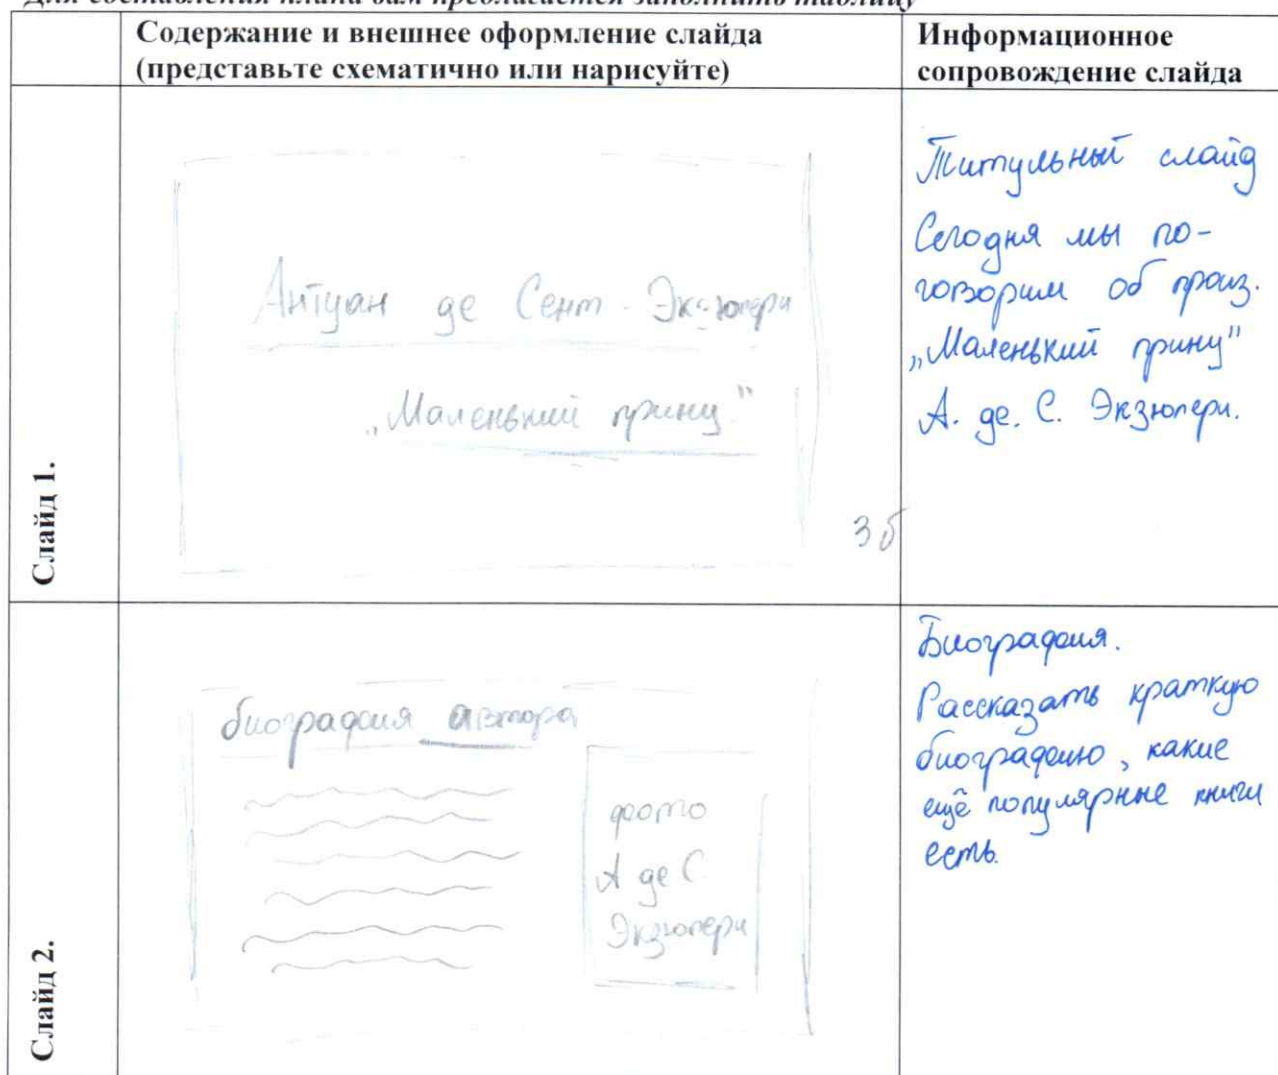 Для составления плана вам предлагается заполнить таблицу
Содержание и внешнее оформление слайда
(представьте схематично или нарисуйте)
Информационное
сопровождение слайда
Слайд 1.
Антуан де Сент-Экзюпери
„Маленький принц"
3 б
Титульный слайд
Сегодня мы по-
говорим об произ.
„Маленький принц"
А. де. С. Экзюпери.
Слайд 2.
биография автора
фото
А де С.
Экзюпери
Биография.
Рассказать краткую
биографию, какие
ещё популярные книги
есть.